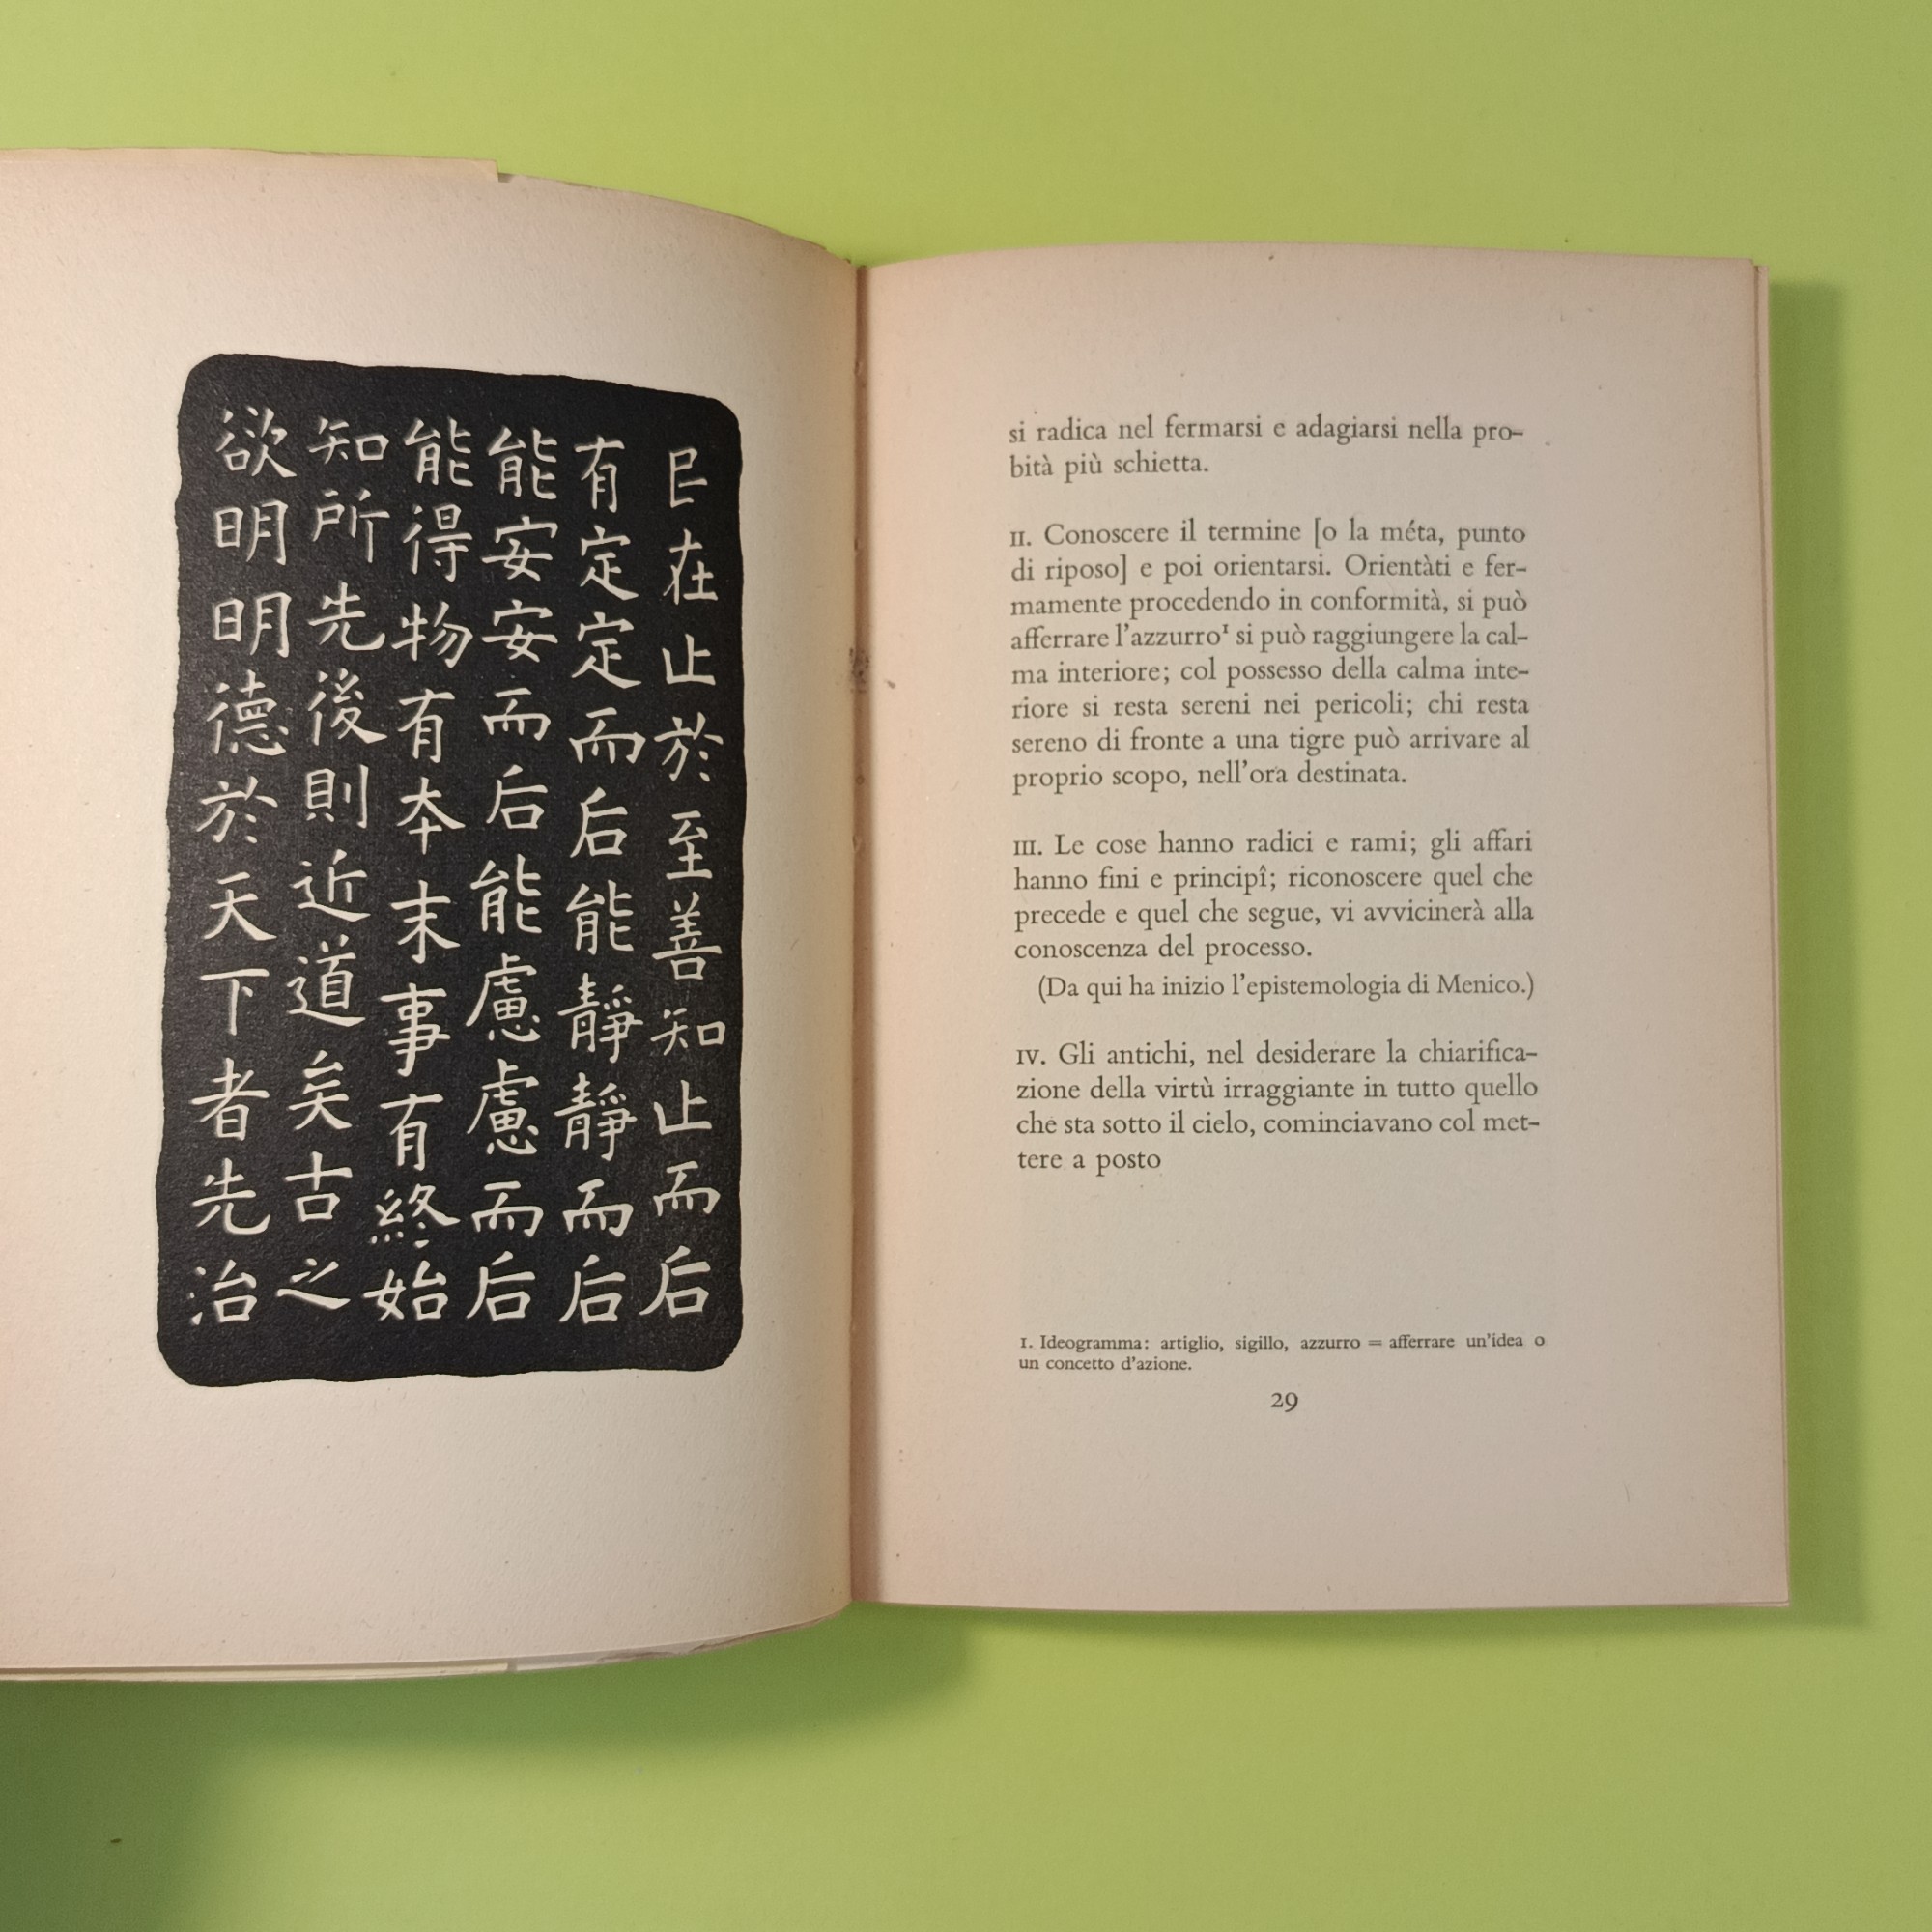 民在止於至善知止而后
有定定而后能靜靜而后
能安安而后能慮慮而后
能得物有夲末事有終始
知所先後則近道矣古之
欲明明德於天下者先治
si radica nel fermarsi e adagiarsi nella pro-
bità più schietta.
II. Conoscere il termine [o la méta, punto
di riposo] e poi orientarsi. Orientàti e fer-
mamente procedendo in conformità, si può
afferrare l'azzurro¹ si può raggiungere la cal-
ma interiore; col possesso della calma inte-
riore si resta sereni nei pericoli; chi resta
sereno di fronte a una tigre può arrivare al
proprio scopo, nell'ora destinata.
III. Le cose hanno radici e rami; gli affari
hanno fini e principî; riconoscere quel che
precede e quel che segue, vi avvicinerà alla
conoscenza del processo.
(Da qui ha inizio l'epistemologia di Menico.)
IV. Gli antichi, nel desiderare la chiarifica-
zione della virtù irraggiante in tutto quello
che sta sotto il cielo, cominciavano col met-
tere a posto
1. Ideogramma: artiglio, sigillo, azzurro = afferrare un'idea o
un concetto d'azione.
29